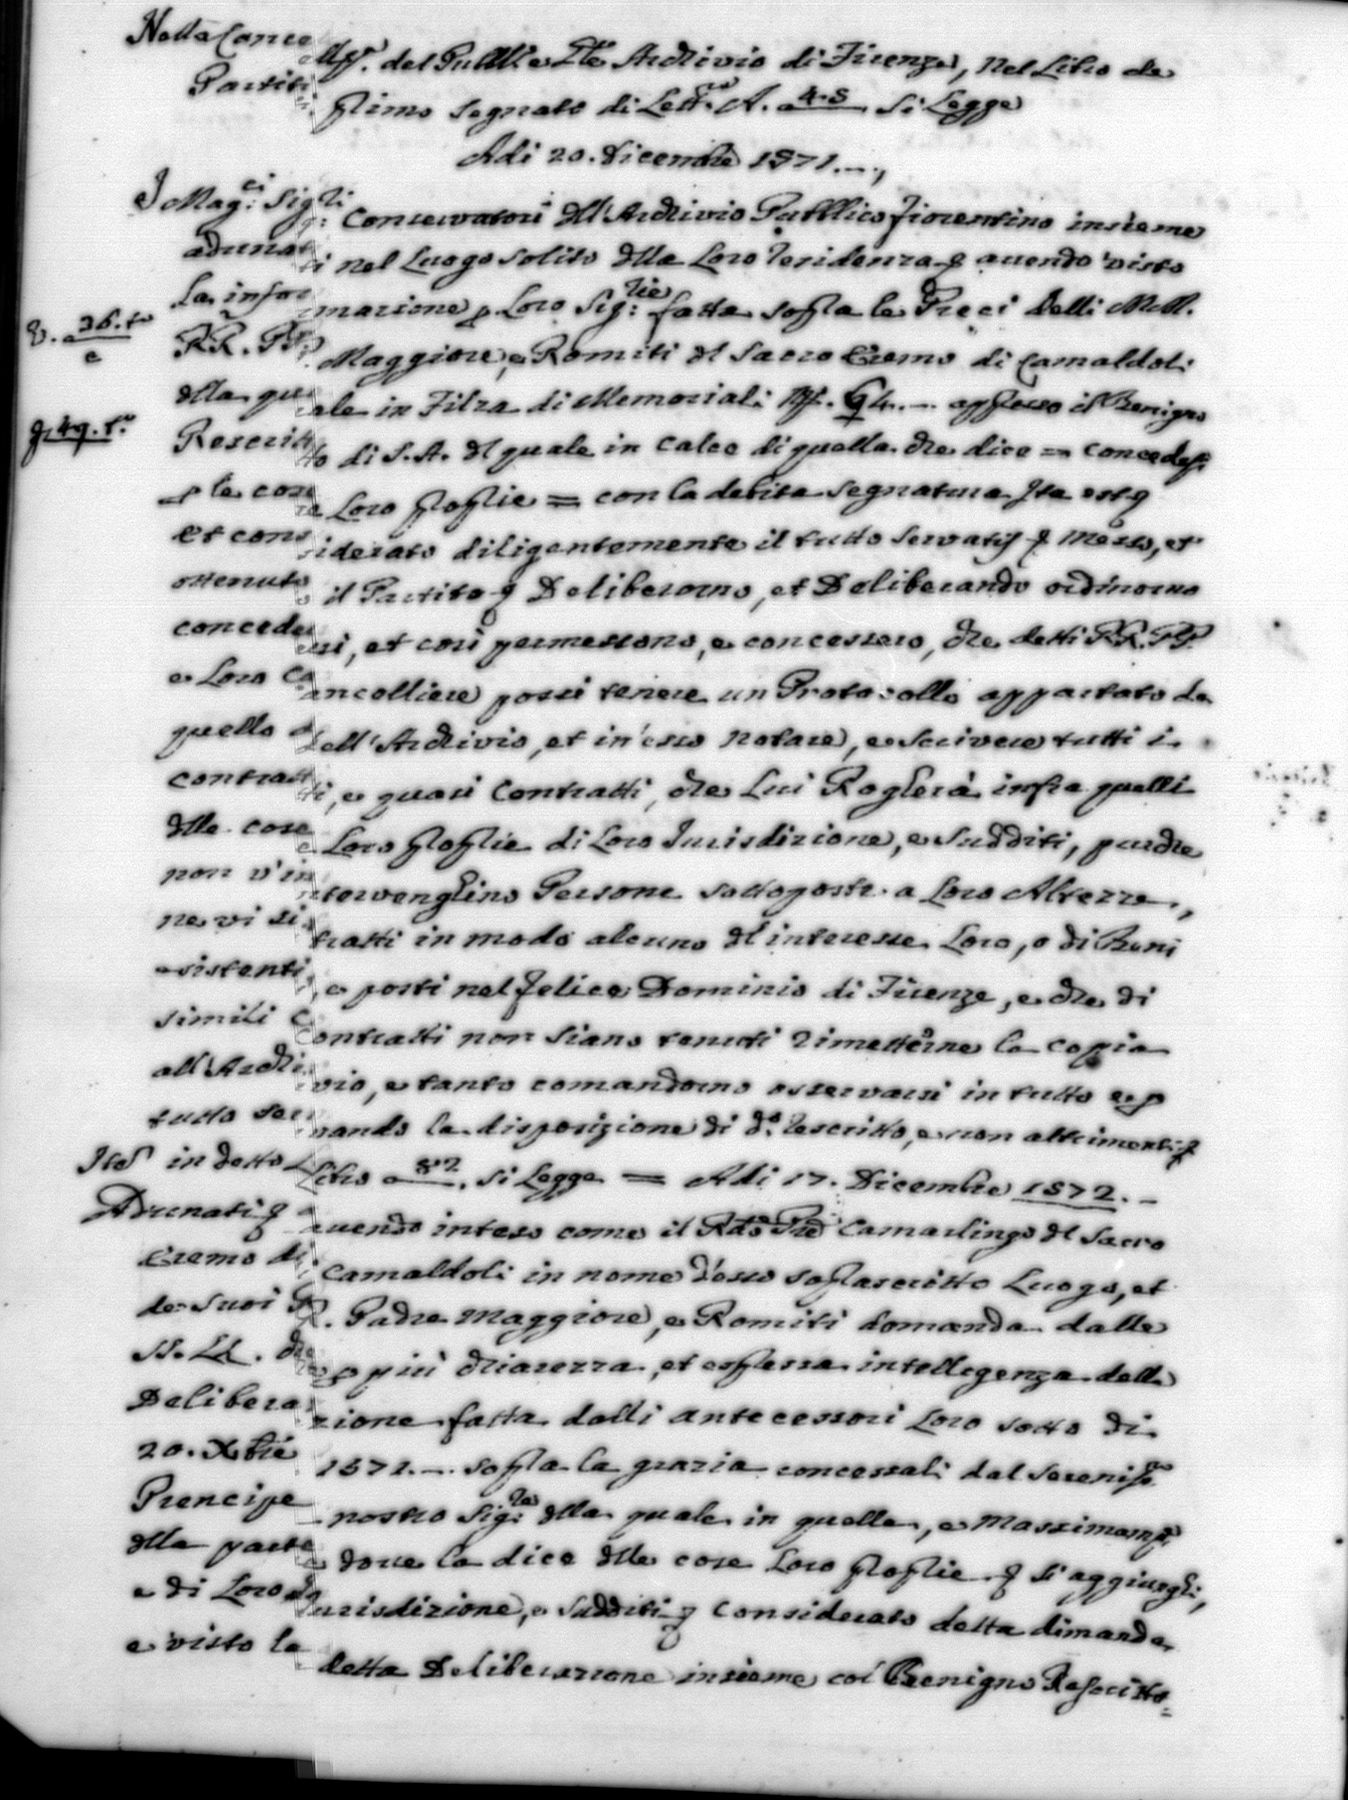 Nella Cancell.ª del Pubb.º Archivio di Firenze, nel Libro de
Partiti primo segnato di Lett.ª A. a 48 si Legge
Adi 20. Dicembre 1571. —,
I Mag.ci Sig.ri Conservatori dll'Archivio Pubblico fiorentino insieme
adunati nel Luogo solito dlla Loro residenza avendo visto
la informazione p Loro Sig.rie fatta sopra le Preci delli MM.
RR. PP. Maggiore, e Romiti dl Sacro Eremo di Camaldoli
V. 36. t.º
e
dlla quale in Filza di Memoriali N.º 94. — appresso il Benigno
f. 49. t.º
Rescritto di S. A. dl quale in calce di quella che dice = Concedesi
p le cose Loro proprie = con la debita segnatura Ita est
et considerato diligentemente il tutto servatis & messo, et
ottenuto il Partito & Deliberorno, et Deliberando ordinorno
concedersi, et così permessono, e concessero, che detti RR. PP.
e Loro Cancelliere possi tenere un Protocollo appartato da
quello dell'Archivio, et in esso notare, e scrivere tutti i
contratti, e quasi Contratti, che Lui Rogherà infra quelli
dlle cose Loro proprie di Loro Jurisdizione, e Sudditi, purche
non v'intervenghino Persone sottoposte a Loro Altezze,
ne vi si tratti in modo alcuno dl interesse Loro, o di Beni
esistenti, e posti nel felice Dominio di Firenze, e che di
simili Contratti non siano tenuti rimetterne la copia
all'Archivio, e tanto comandorno osservarsi in tutto e p
tutto servando la disposizione di d.º rescritto, e non altrimenti &
Ite in detto Libro a 82. si Legge = Adi 17. Dicembre 1572. —
Adunati & avendo inteso come il Rdo Pre Camarlingo dl Sacro
Eremo di Camaldoli in nome d'esso soprascritto Luogo, et
de suoi R. Padre Maggiore, e Romiti domanda dalle
SS. LL. che p più chiarezza, et espressa intelligenza della
Deliberazione fatta dalli antecessori Loro sotto di
20. Xbre 1571. — sopra la grazia concessali dal Sereniss.º
Prencipe nostro Sig.re dlla quale in quella, e massimam.te
dlla parte dove la dice dlle cose Loro proprie & si aggiunghi,
e di Loro Jurisdizione, e Sudditi & considerato detta dimanda
e visto la detta Deliberazione insieme col Benigno Rescritto